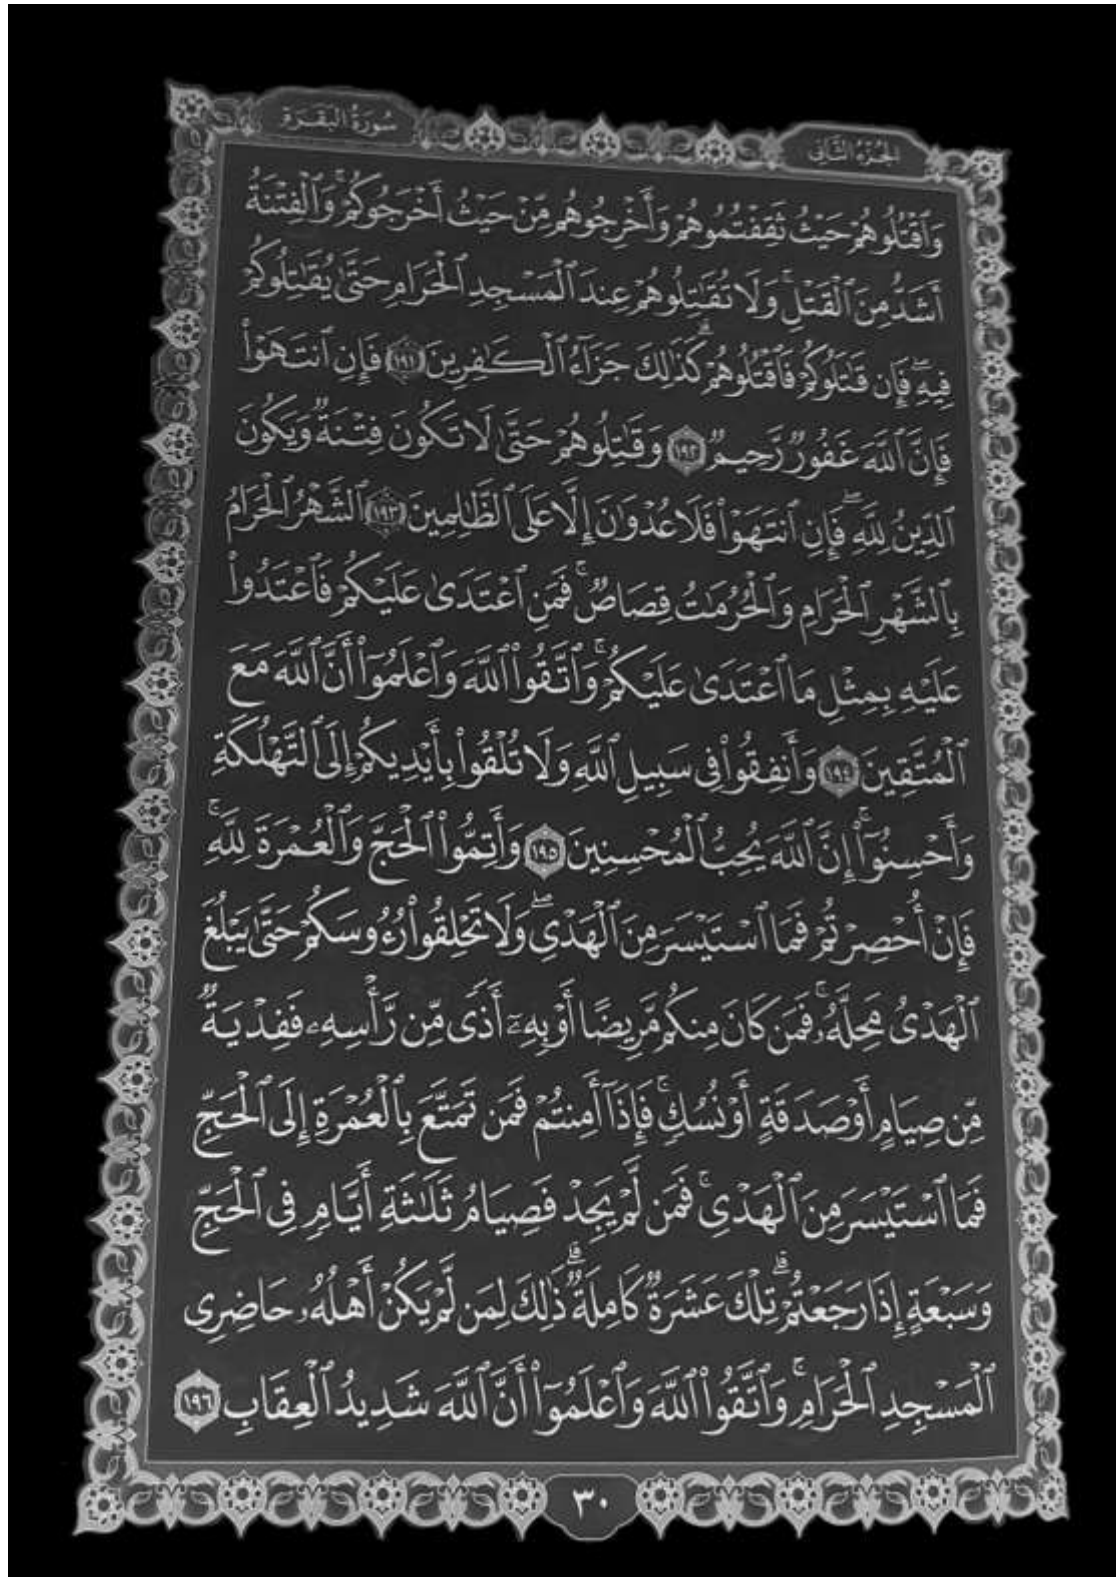 الجزء الثاني
سورة البقرة
وَٱقْتُلُوهُمْ حَيْثُ ثَقِفْتُمُوهُمْ وَأَخْرِجُوهُم مِّنْ حَيْثُ أَخْرَجُوكُمْ ۚ وَٱلْفِتْنَةُ
أَشَدُّ مِنَ ٱلْقَتْلِ ۚ وَلَا تُقَـٰتِلُوهُمْ عِندَ ٱلْمَسْجِدِ ٱلْحَرَامِ حَتَّىٰ يُقَـٰتِلُوكُمْ
فِيهِ ۖ فَإِن قَـٰتَلُوكُمْ فَٱقْتُلُوهُمْ ۗ كَذَٰلِكَ جَزَآءُ ٱلْكَـٰفِرِينَ ١٩١ فَإِنِ ٱنتَهَوْا۟
فَإِنَّ ٱللَّهَ غَفُورٌ رَّحِيمٌ ١٩٢ وَقَـٰتِلُوهُمْ حَتَّىٰ لَا تَكُونَ فِتْنَةٌ وَيَكُونَ
ٱلدِّينُ لِلَّهِ ۖ فَإِنِ ٱنتَهَوْا۟ فَلَا عُدْوَٰنَ إِلَّا عَلَى ٱلظَّـٰلِمِينَ ١٩٣ ٱلشَّهْرُ ٱلْحَرَامُ
بِٱلشَّهْرِ ٱلْحَرَامِ وَٱلْحُرُمَـٰتُ قِصَاصٌ ۚ فَمَنِ ٱعْتَدَىٰ عَلَيْكُمْ فَٱعْتَدُوا۟
عَلَيْهِ بِمِثْلِ مَا ٱعْتَدَىٰ عَلَيْكُمْ ۚ وَٱتَّقُوا۟ ٱللَّهَ وَٱعْلَمُوٓا۟ أَنَّ ٱللَّهَ مَعَ
ٱلْمُتَّقِينَ ١٩٤ وَأَنفِقُوا۟ فِى سَبِيلِ ٱللَّهِ وَلَا تُلْقُوا۟ بِأَيْدِيكُمْ إِلَى ٱلتَّهْلُكَةِ
وَأَحْسِنُوٓا۟ ۚ إِنَّ ٱللَّهَ يُحِبُّ ٱلْمُحْسِنِينَ ١٩٥ وَأَتِمُّوا۟ ٱلْحَجَّ وَٱلْعُمْرَةَ لِلَّهِ ۚ
فَإِنْ أُحْصِرْتُمْ فَمَا ٱسْتَيْسَرَ مِنَ ٱلْهَدْىِ ۖ وَلَا تَحْلِقُوا۟ رُءُوسَكُمْ حَتَّىٰ يَبْلُغَ
ٱلْهَدْىُ مَحِلَّهُۥ ۚ فَمَن كَانَ مِنكُم مَّرِيضًا أَوْ بِهِۦٓ أَذًى مِّن رَّأْسِهِۦ فَفِدْيَةٌ
مِّن صِيَامٍ أَوْ صَدَقَةٍ أَوْ نُسُكٍ ۚ فَإِذَآ أَمِنتُمْ فَمَن تَمَتَّعَ بِٱلْعُمْرَةِ إِلَى ٱلْحَجِّ
فَمَا ٱسْتَيْسَرَ مِنَ ٱلْهَدْىِ ۚ فَمَن لَّمْ يَجِدْ فَصِيَامُ ثَلَـٰثَةِ أَيَّامٍ فِى ٱلْحَجِّ
وَسَبْعَةٍ إِذَا رَجَعْتُمْ ۗ تِلْكَ عَشَرَةٌ كَامِلَةٌ ۗ ذَٰلِكَ لِمَن لَّمْ يَكُنْ أَهْلُهُۥ حَاضِرِى
ٱلْمَسْجِدِ ٱلْحَرَامِ ۚ وَٱتَّقُوا۟ ٱللَّهَ وَٱعْلَمُوٓا۟ أَنَّ ٱللَّهَ شَدِيدُ ٱلْعِقَابِ ١٩٦
٣٠